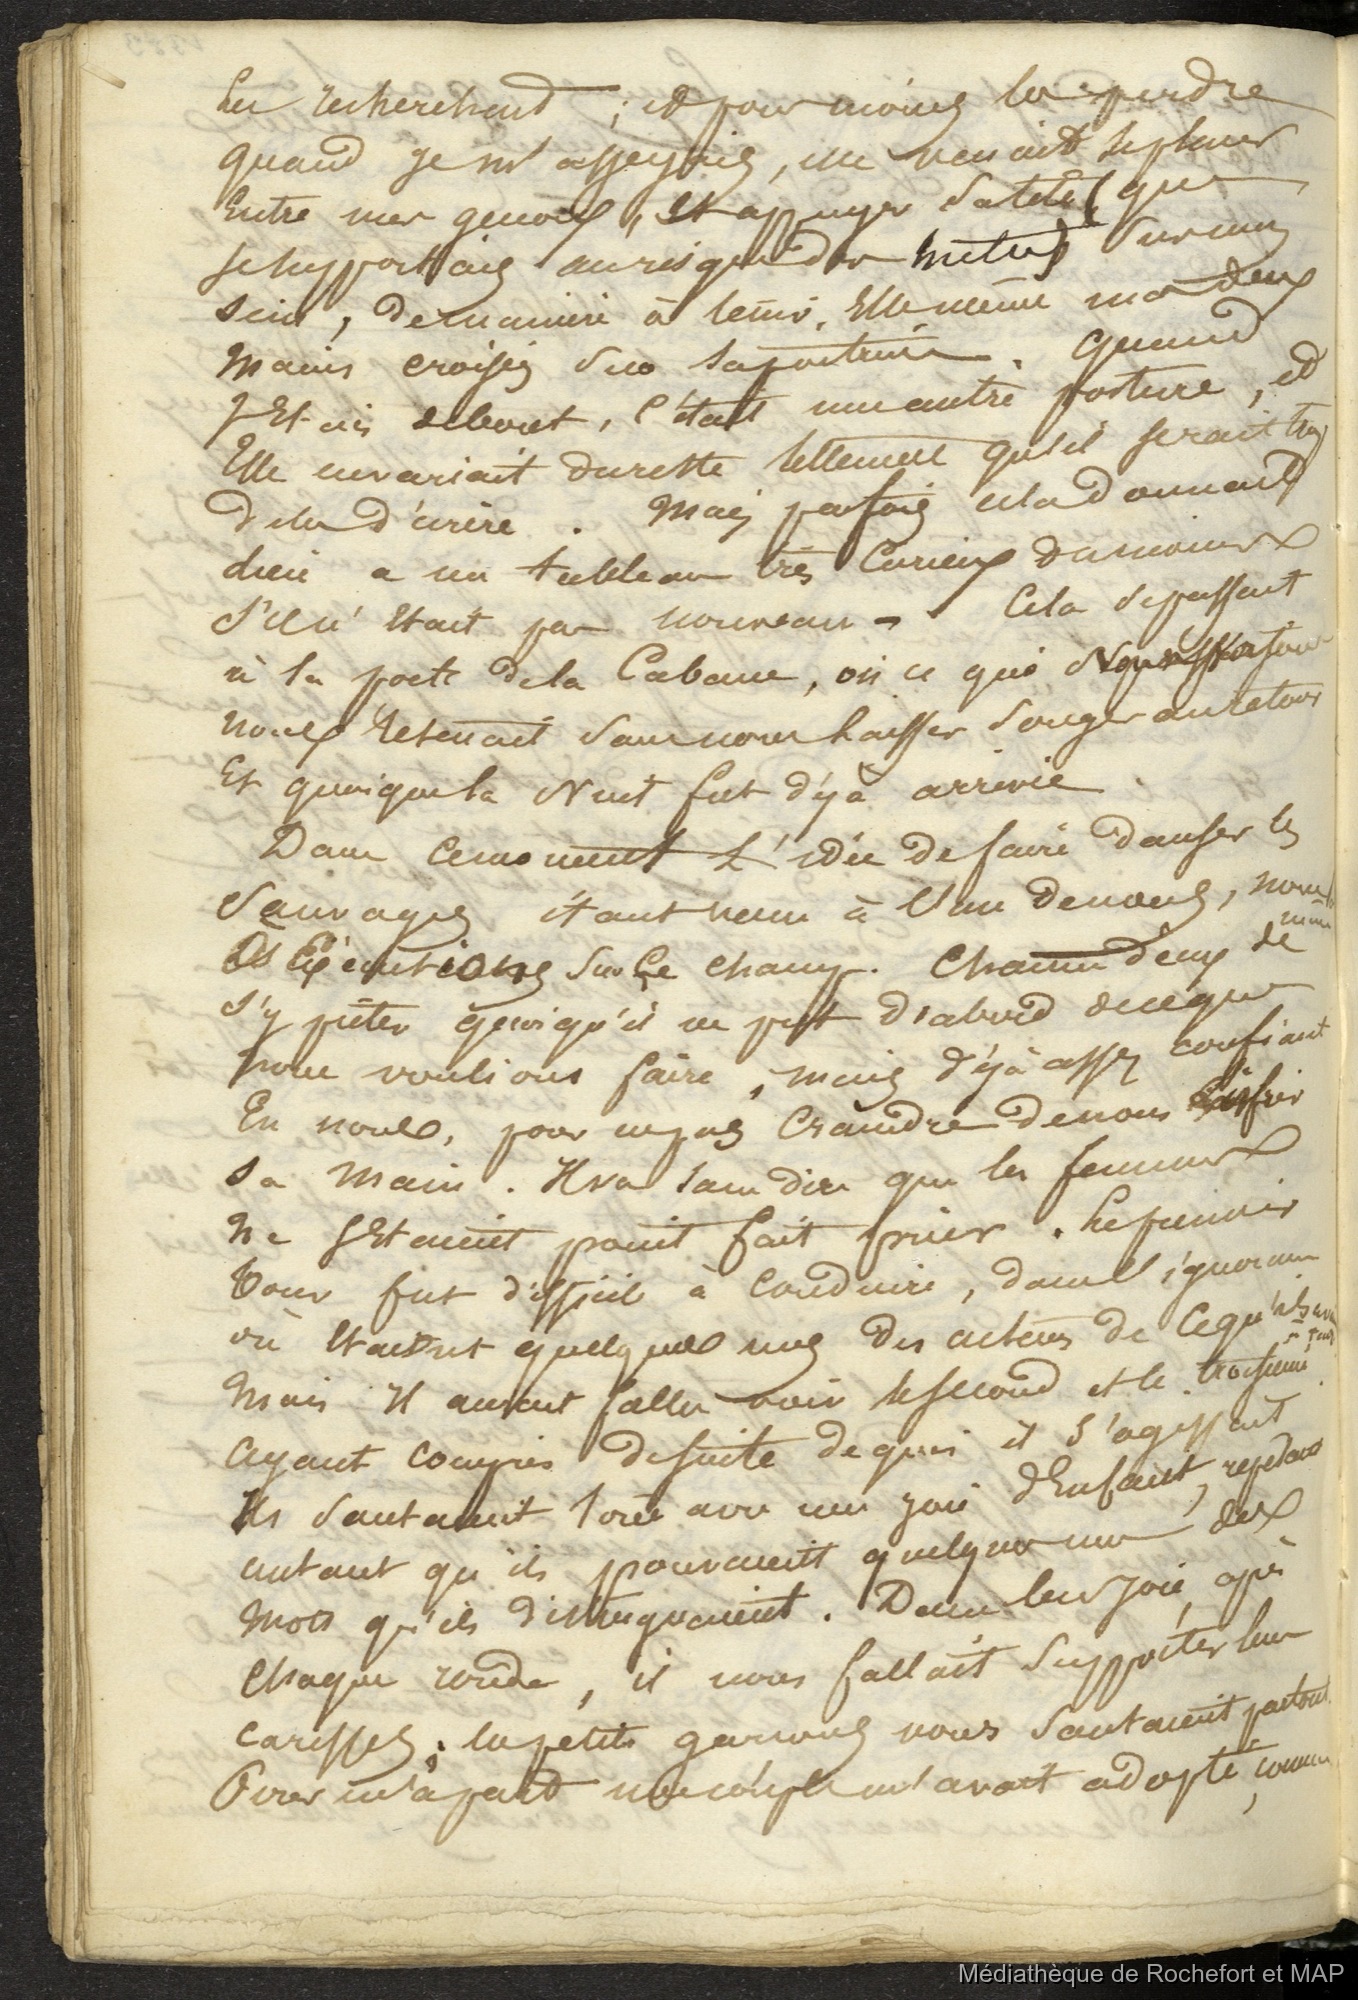 les recherchent ; et pour moins la perdre
quand je m'asseyois, elle venait se placer
Entre mes genoux, et appuyer sa tête (que
je supportais au risque de mettes) sur mon
sein, de maniere à tenir Elle même mes deux
mains croisées sur sa poitrine. Quand
J'Etais debout, c'était une autre posture, et
Elle en variait du reste tellement qu'il serait trop
d'écrire. Mais parfois cela donnait
lieu a un tableau très Curieux du moins
s'il n'était pas nouveau. Cela se passant
à la porte de la Cabane, où ce qui
nous retenait sans nous laisser songer au retour
Et quoique la Nuit fut déjà arrivée
Dans ce moment L'idée de faire danser les
Sauvages étant venu à l'un de nous, nous
Exécutions sur le champ. Chacun d'eux de
même
s'y prêter quoiqu'il ne put d'abord ce que
nous voulions faire, mais déjà assez confiant
En nous, pour ne pas craindre de nous offrir
sa main. Il va sans dire que les femmes
Ne s'Etaient point fait prier. Le premier
tour fut difficile à conduire, dans l'ignorance
où Etaient quelques uns des acteurs de ce qu'ils
Mais Il aurait fallu voir le second et le troisieme
ayant compris de suite de quoi il s'agissait
Ils sautaient avec une joie d'Enfant, repetant
autant qu'ils pouvaient quelques uns des
mots qu'ils distinguaient. Dans leur joie, après
Chaque ronde, il nous fallait supporter leurs
caresses; les petits garçons nous sautaient partout.
Pour m'a part un couple m'avait adopté, comme